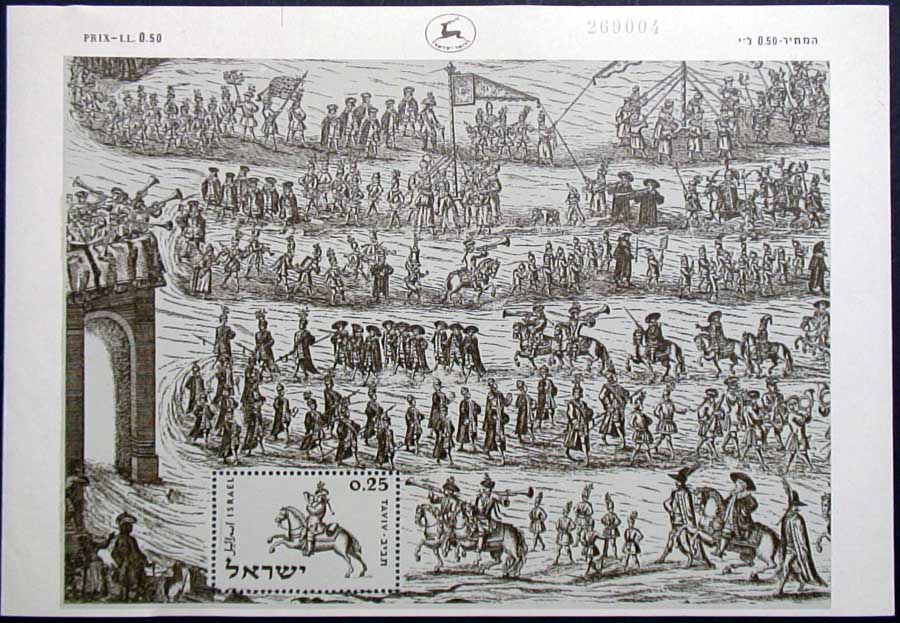 269004
PRIX-I.L. 0.50
המחיר-0.50 ל״י
דואר ישראל
0.25
ISRAEL
TAVIV-תבי״ב
ישראל